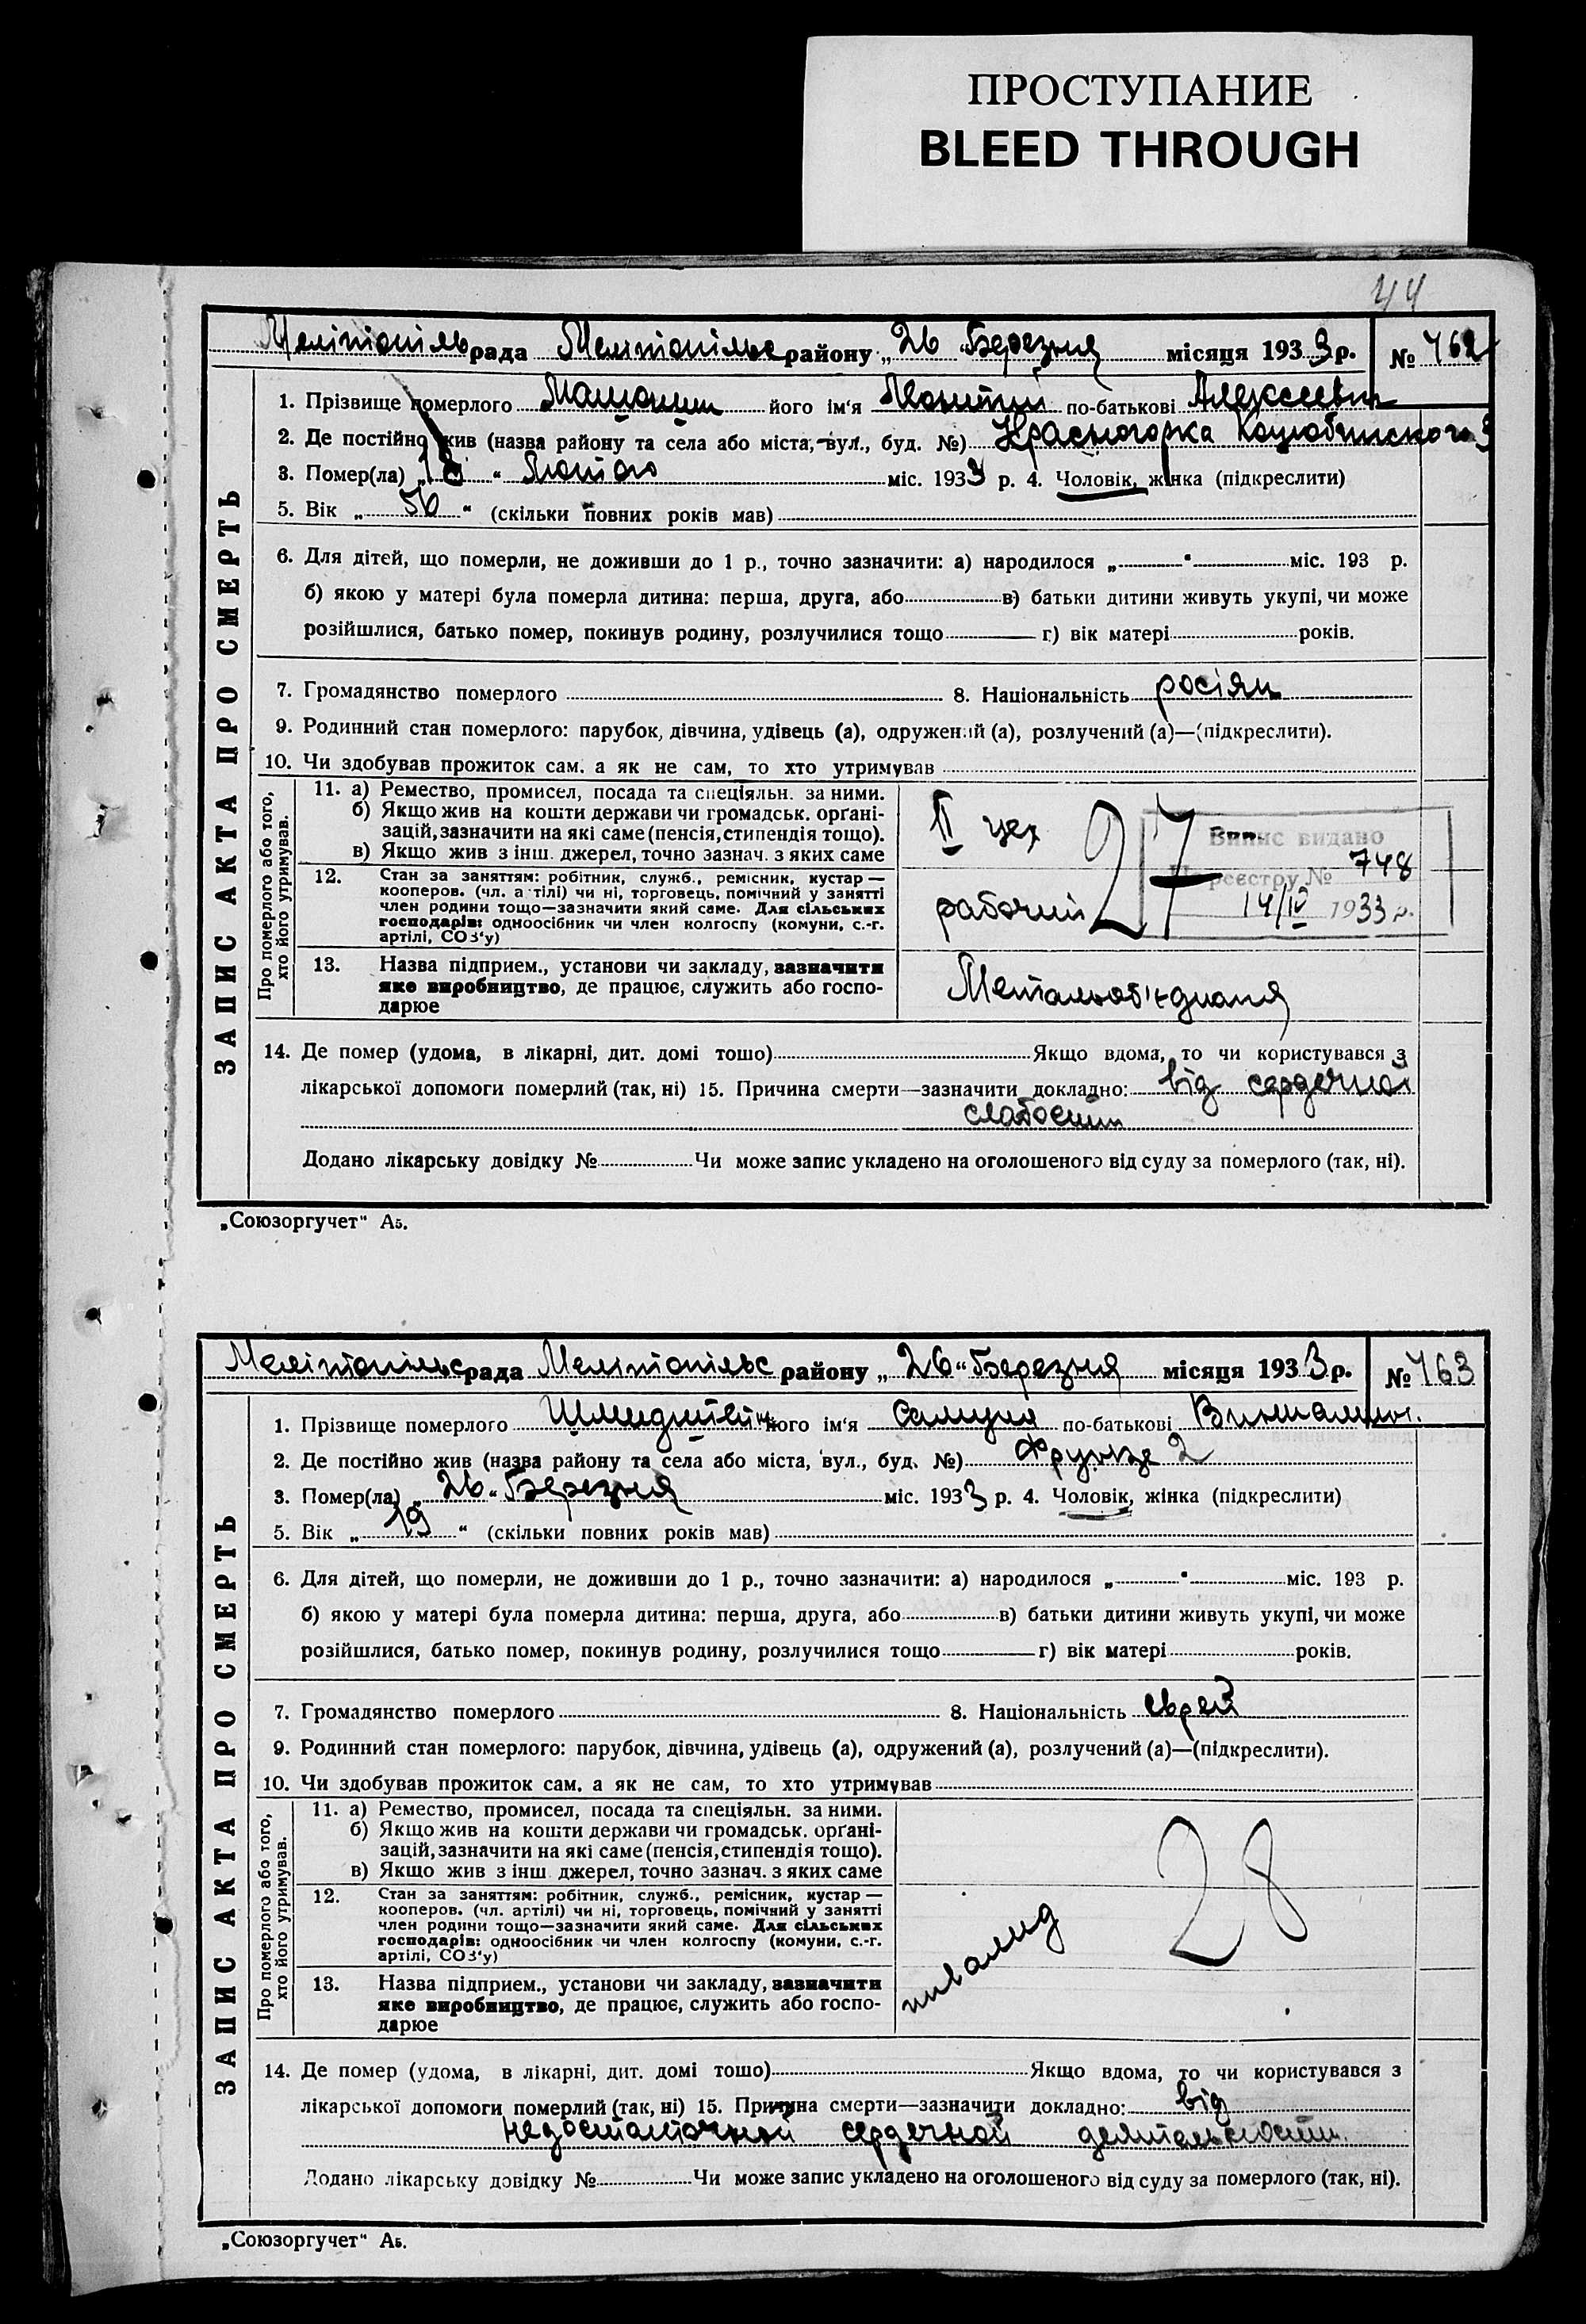 ПРОСТУПАНИЕ
BLEED THROUGH
44
Меліпіопіль рада Меліпіопільс району „26“ Березня місяця 1933 р. № 462
1. Прізвище померлого його ім'я по-батькові Алексеевич
2. Де постійно жив (назва району та села або міста, вул., буд. №) Красногорка Коцюбинского 3
3. Помер(ла) „18“ Лютого міс. 1933 р. 4. Чоловік, жінка (підкреслити)
5. Вік „56“ (скільки повних років мав)
6. Для дітей, що померли, не доживши до 1 р., точно зазначити: а) народилося „ “ міс. 193 р.
б) якою у матері була померла дитина: перша, друга, або в) батьки дитини живуть укупі, чи може
розійшлися, батько помер, покинув родину, розлучилися тощо г) вік матері років.
7. Громадянство померлого 8. Національність росіян
9. Родинний стан померлого: парубок, дівчина, удівець (а), одружений (а), розлучений (а)—(підкреслити).
10. Чи здобував прожиток сам, а як не сам, то хто утримував
ЗАПИС АКТА ПРО СМЕРТЬ
Про померлого або того,
хто його утримував.
11. а) Ремество, промисел, посада та спеціяльн. за ними.
б) Якщо жив на кошти держави чи громадськ. орґані-
зацій, зазначити на які саме (пенсія, стипендія тощо).
в) Якщо жив з інш. джерел, точно зазнач. з яких саме
II цех
27
Випис видано
По реєстру № 748
14/IV 1933 р.
12. Стан за заняттям: робітник, служб., ремісник, кустар —
кооперов. (чл. артілі) чи ні, торговець, помічний у занятті
член родини тощо—зазначити який саме. Для сільських
господарів: одноосібник чи член колгоспу (комуни, с.-г.
артілі, СОЗ'у)
рабочий
13. Назва підприєм., установи чи закладу, зазначити
яке виробництво, де працює, служить або госпо-
дарює
Метальоб'єднаня
14. Де помер (удома, в лікарні, дит. домі тошо) Якщо вдома, то чи користувався з
лікарської допомоги померлий (так, ні) 15. Причина смерти—зазначити докладно: від сердечной
слабости
Додано лікарську довідку № Чи може запис укладено на оголошеного від суду за померлого (так, ні).
„Союзоргучет“ А5.
Меліпіопільс рада Меліпіопільс району „26“ Березня місяця 1933 р. № 463
1. Прізвище померлого його ім'я по-батькові
2. Де постійно жив (назва району та села або міста, вул., буд. №) Фрунзе 2
3. Помер(ла) „26“ Березня міс. 1933 р. 4. Чоловік, жінка (підкреслити)
5. Вік „19“ (скільки повних років мав)
6. Для дітей, що померли, не доживши до 1 р., точно зазначити: а) народилося „ “ міс. 193 р.
б) якою у матері була померла дитина: перша, друга, або в) батьки дитини живуть укупі, чи може
розійшлися, батько помер, покинув родину, розлучилися тощо г) вік матері років.
7. Громадянство померлого 8. Національність єврей
9. Родинний стан померлого: парубок, дівчина, удівець (а), одружений (а), розлучений (а)—(підкреслити).
10. Чи здобував прожиток сам, а як не сам, то хто утримував
ЗАПИС АКТА ПРО СМЕРТЬ
Про померлого або того,
хто його утримував.
11. а) Ремество, промисел, посада та спеціяльн. за ними.
б) Якщо жив на кошти держави чи громадськ. орґані-
зацій, зазначити на які саме (пенсія, стипендія тощо).
в) Якщо жив з інш. джерел, точно зазнач. з яких саме
28
12. Стан за заняттям: робітник, служб., ремісник, кустар —
кооперов. (чл. артілі) чи ні, торговець, помічний у занятті
член родини тощо—зазначити який саме. Для сільських
господарів: одноосібник чи член колгоспу (комуни, с.-г.
артілі, СОЗ'у)
инвалид
13. Назва підприєм., установи чи закладу, зазначити
яке виробництво, де працює, служить або госпо-
дарює
14. Де помер (удома, в лікарні, дит. домі тошо) Якщо вдома, то чи користувався з
лікарської допомоги померлий (так, ні) 15. Причина смерти—зазначити докладно: від
недостаточной сердечной деятельности
Додано лікарську довідку № Чи може запис укладено на оголошеного від суду за померлого (так, ні).
„Союзоргучет“ А5.